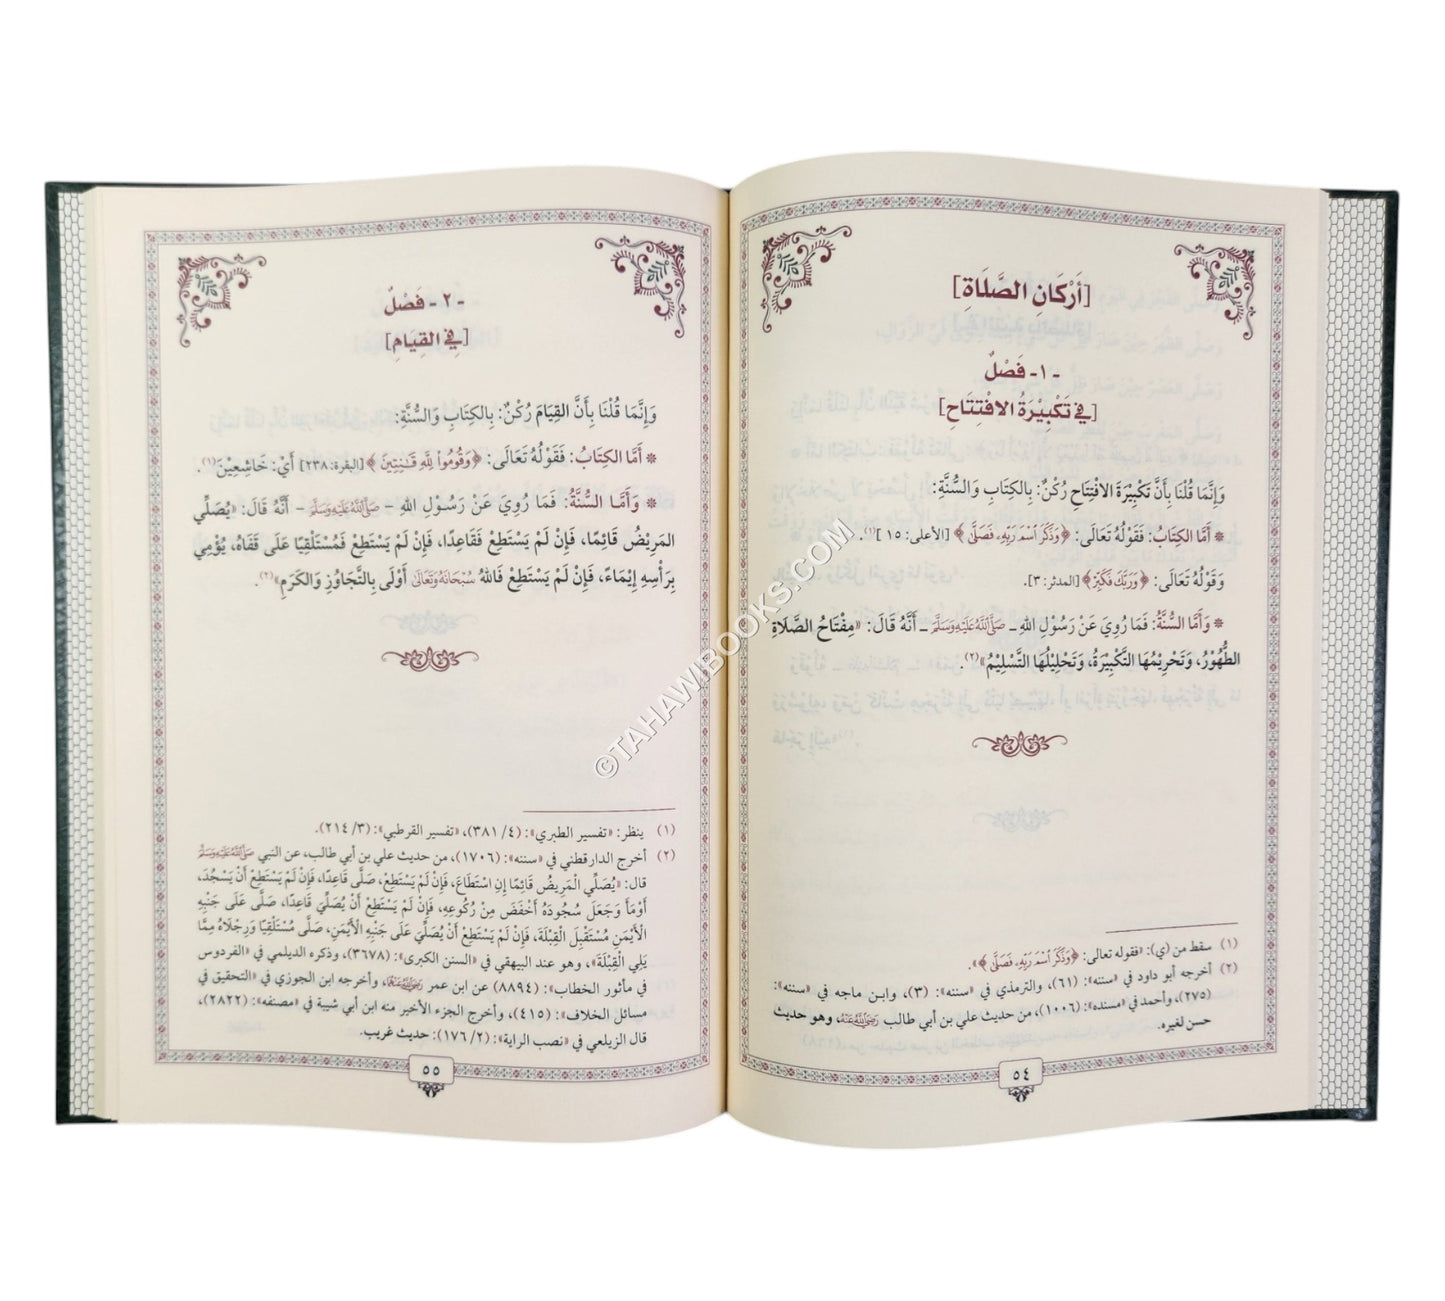 [أَرْكَانِ الصَّلَاةِ]
-١- فَصْلٌ
[فِي تَكْبِيْرَةُ الافْتِتَاحِ]
وَإِنَّمَا قُلْنَا بِأَنَّ تَكْبِيْرَةَ الافْتِتَاحِ رُكْنٌ: بِالكِتَابِ وَالسُّنَّةِ:
* أَمَّا الكِتَابُ: فَقَوْلُهُ تَعَالَى: ﴿وَذَكَرَ اسْمَ رَبِّهِ فَصَلَّى﴾ [الأعلى: ١٥](١).
وَقَوْلُهُ تَعَالَى: ﴿وَرَبَّكَ فَكَبِّرْ﴾[المدثر: ٣].
* وَأَمَّا السُّنَّةُ: فَمَا رُوِيَ عَنْ رَسُوْلِ اللهِ - صَلَّى اللَّهُ عَلَيْهِ وَسَلَّمَ - أَنَّهُ قَالَ: «مِفْتَاحُ الصَّلَاةِ
الطُّهُوْرُ، وَتَحْرِيْمُهَا التَّكْبِيْرَةُ، وَتَحْلِيْلُهَا التَّسْلِيْمُ»(٢).
(١) سقط من (ي): «فقوله تعالى: ﴿وَذَكَرَ اسْمَ رَبِّهِ فَصَلَّى﴾».
(٢) أخرجه أبو داود في «سننه»: (٦١)، والترمذي في «سننه»: (٣)، وابن ماجه في «سننه»:
(٢٧٥)، وأحمد في «مسنده»: (١٠٠٦)، من حديث علي بن أبي طالب رَضِيَ اللَّهُ عَنْهُ، وهو حديث
حسن لغيره.
٥٤
-٢- فَصْلٌ
[فِي القِيَامِ]
وَإِنَّمَا قُلْنَا بِأَنَّ القِيَامَ رُكْنٌ: بِالكِتَابِ وَالسُّنَّةِ:
* أَمَّا الكِتَابُ: فَقَوْلُهُ تَعَالَى: ﴿وَقُومُواْ لِلَّهِ قَٰنِتِينَ﴾[البقرة: ٢٣٨] أَيْ: خَاشِعِيْنَ(١).
* وَأَمَّا السُّنَّةُ: فَمَا رُوِيَ عَنْ رَسُوْلِ اللهِ - صَلَّى اللَّهُ عَلَيْهِ وَسَلَّمَ - أَنَّهُ قَالَ: «يُصَلِّي
المَرِيْضُ قَائِمًا، فَإِنْ لَمْ يَسْتَطِعْ فَقَاعِدًا، فَإِنْ لَمْ يَسْتَطِعْ فَمُسْتَلْقِيًا عَلَى قَفَاهُ، يُؤْمِي
بِرَأْسِهِ إِيْمَاءً، فَإِنْ لَمْ يَسْتَطِعْ فَاللهُ سُبْحَانَهُ وَتَعَالَى أَوْلَى بِالتَّجَاوُزِ وَالكَرَمِ»(٢).
(١) ينظر: «تفسير الطبري»: (٤/ ٣٨١)، «تفسير القرطبي»: (٣/ ٢١٤).
(٢) أخرج الدارقطني في «سننه»: (١٧٠٦)، من حديث علي بن أبي طالب، عن النبي صَلَّى اللَّهُ عَلَيْهِ وَسَلَّمَ
قال: «يُصَلِّي الْمَرِيضُ قَائِمًا إِنِ اسْتَطَاعَ، فَإِنْ لَمْ يَسْتَطِعْ، صَلَّى قَاعِدًا، فَإِنْ لَمْ يَسْتَطِعْ أَنْ يَسْجُدَ،
أَوْمَأَ وَجَعَلَ سُجُودَهُ أَخْفَضَ مِنْ رُكُوعِهِ، فَإِنْ لَمْ يَسْتَطِعْ أَنْ يُصَلِّيَ قَاعِدًا، صَلَّى عَلَى جَنْبِهِ
الْأَيْمَنِ مُسْتَقْبِلَ الْقِبْلَةَ، فَإِنْ لَمْ يَسْتَطِعْ أَنْ يُصَلِّيَ عَلَى جَنْبِهِ الْأَيْمَنِ، صَلَّى مُسْتَلْقِيًا وَرِجْلَاهُ مِمَّا
يَلِي الْقِبْلَةَ»، وهو عند البيهقي في «السنن الكبرى»: (٣٦٧٨)، وذكره الديلمي في «الفردوس
في مأثور الخطاب»: (٨٨٩٤) عن ابن عمر رَضِيَ اللَّهُ عَنْهُمَا، وأخرجه ابن الجوزي في «التحقيق في
مسائل الخلاف»: (٤١٥)، وأخرج الجزء الأخير منه ابن أبي شيبة في «مصنفه»: (٢٨٢٢)،
قال الزيلعي في «نصب الراية»: (٢/ ١٧٦): حديث غريب.
٥٥
©TAHAWIBOOKS.COM